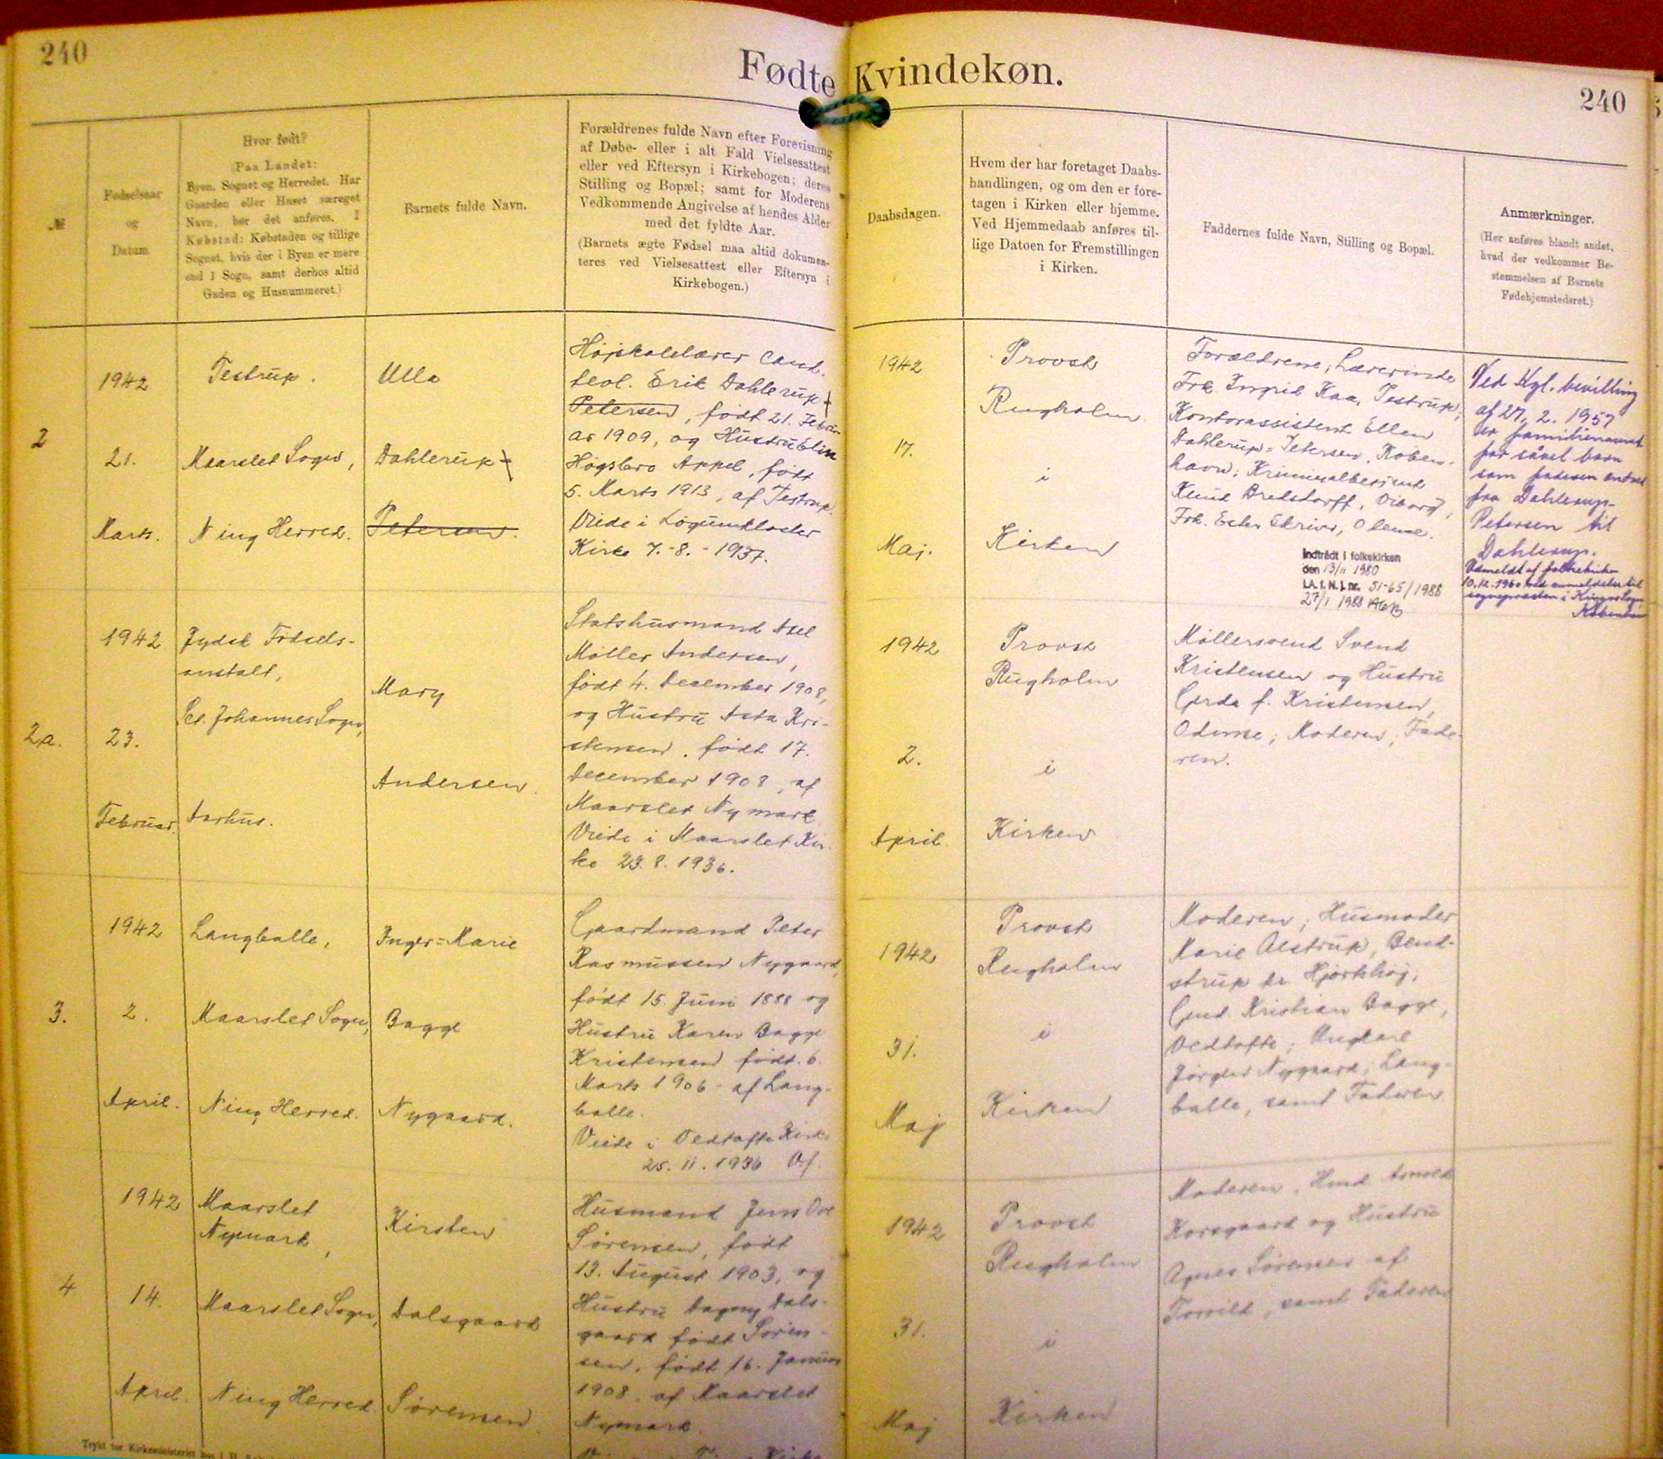 240
Fødte Kvindekøn.
240
№
Fødselsaar
og
Datum
Hvor født?
(Paa Landet:
Byen, Sognet og Herredet. Har
Gaarden eller Huset særeget
Navn, bør det anføres. I
Købstad: Købstaden og tillige
Sognet, hvis der i Byen er mere
end 1 Sogn, samt derhos altid
Gaden og Husnummeret.)
Barnets fulde Navn.
Forældrenes fulde Navn efter Forevisning
af Døbe- eller i alt Fald Vielsesattest
eller ved Eftersyn i Kirkebogen; deres
Stilling og Bopæl; samt for Moderens
Vedkommende Angivelse af hendes Alder
med det fyldte Aar.
(Barnets ægte Fødsel maa altid dokumen-
teres ved Vielsesattest eller Eftersyn i
Kirkebogen.)
Daabsdagen.
Hvem der har foretaget Daabs-
handlingen, og om den er fore-
tagen i Kirken eller hjemme.
Ved Hjemmedaab anføres til-
lige Datoen for Fremstillingen
i Kirken.
Faddernes fulde Navn, Stilling og Bopæl.
Anmærkninger.
(Her anføres blandt andet,
hvad der vedkommer Be-
stemmelsen af Barnets
Fødehjemstedsret.)
2
1942
21.
Marts.
Testrup.
Maarslet Sogn,
Ning Herred.
Ulla
Dahlerup
Petersen.
Højskolelærer cand.
teol. Erik Dahlerup
Petersen, født 21. Febru
ar 1909, og Hustru Elin
Høgsbro Appel, født
5. Marts 1913, af Testrup.
Viede i Løgumkloster
Kirke 7.-8.-1937.
1942
17.
Maj.
Provst
Rugholm
i
Kirken
Forældrene; Lærerinde
Frk. Ingrid Kaa, Testrup;
Kontorassistent Ellen
Dahlerup=Petersen, Køben-
havn; Kriminalbetjent
Knud Bredstorff, Viborg,
Frk. Ester Skriver, Odense.
Indtrådt i folkekirken
den 13/11 1980
I.A. f. N. J. nr. 51-65/1988
27/1 1988
Ved Kgl. bevilling
af 27. 2. 1957
er familienavnet
for såvel barn
som faderen ændret
fra Dahlerup-
Petersen til
Dahlerup.
Udmeldt af folkekirken
10.12.1960 ved anmeldelse til
sognepræsten i
København
2a.
1942
23.
Februar.
Jydsk Fødsels-
anstalt,
Sct. Johannes Sogn,
Aarhus.
Mary
Andersen.
Statshusmand Axel
Møller Andersen,
født 4. December 1908,
og Hustru Asta Kri-
stensen, født 17.
December 1908, af
Maarslet Nymark.
Viede i Maarslet Kir-
ke 23.8.1936.
1942
2.
April.
Provst
Rugholm
i
Kirken
Møllersvend Svend
Kristensen og Hustru
Gerda f. Kristensen,
Odense; Moderen; Fade-
ren.
3.
1942
2.
April.
Langballe,
Maarslet Sogn,
Ning Herred.
Inger=Marie
Bagge
Nygaard.
Gaardmand Peter
Rasmussen Nygaard,
født 15. Juni 1888 og
Hustru Karen Bagge
Kristensen født. 6.
Marts 1906 - af Lang-
balle.
Viede i Vedtofte Kirke
25.11.1936
1942
31.
Maj
Provst
Rugholm
i
Kirken
Moderen; Husmoder
Marie Alstrup, Bend-
strup pr Hjorthøj;
Gmd. Kristian Bagge,
Vedtofte; Ungkarl
Jørgen Nygaard, Lang-
balle, samt Faderen.
4
1942
14.
April.
Maarslet
Nymark,
Maarslet Sogn,
Ning Herred
Kirsten
Dalsgaard
Sørensen.
Husmand Jens Ove
Sørensen, født
13. August 1903, og
Hustru Dagny Dals-
gaard født Søren-
sen, født 16. Januar
1908. af Maarslet
Nymark.
1942
31.
Maj
Provst
Rugholm
i
Kirken
Moderen, Hmd Arnold
Korsgaard og Hustru
Agnes Sørensen af
Torrild, samt Faderen